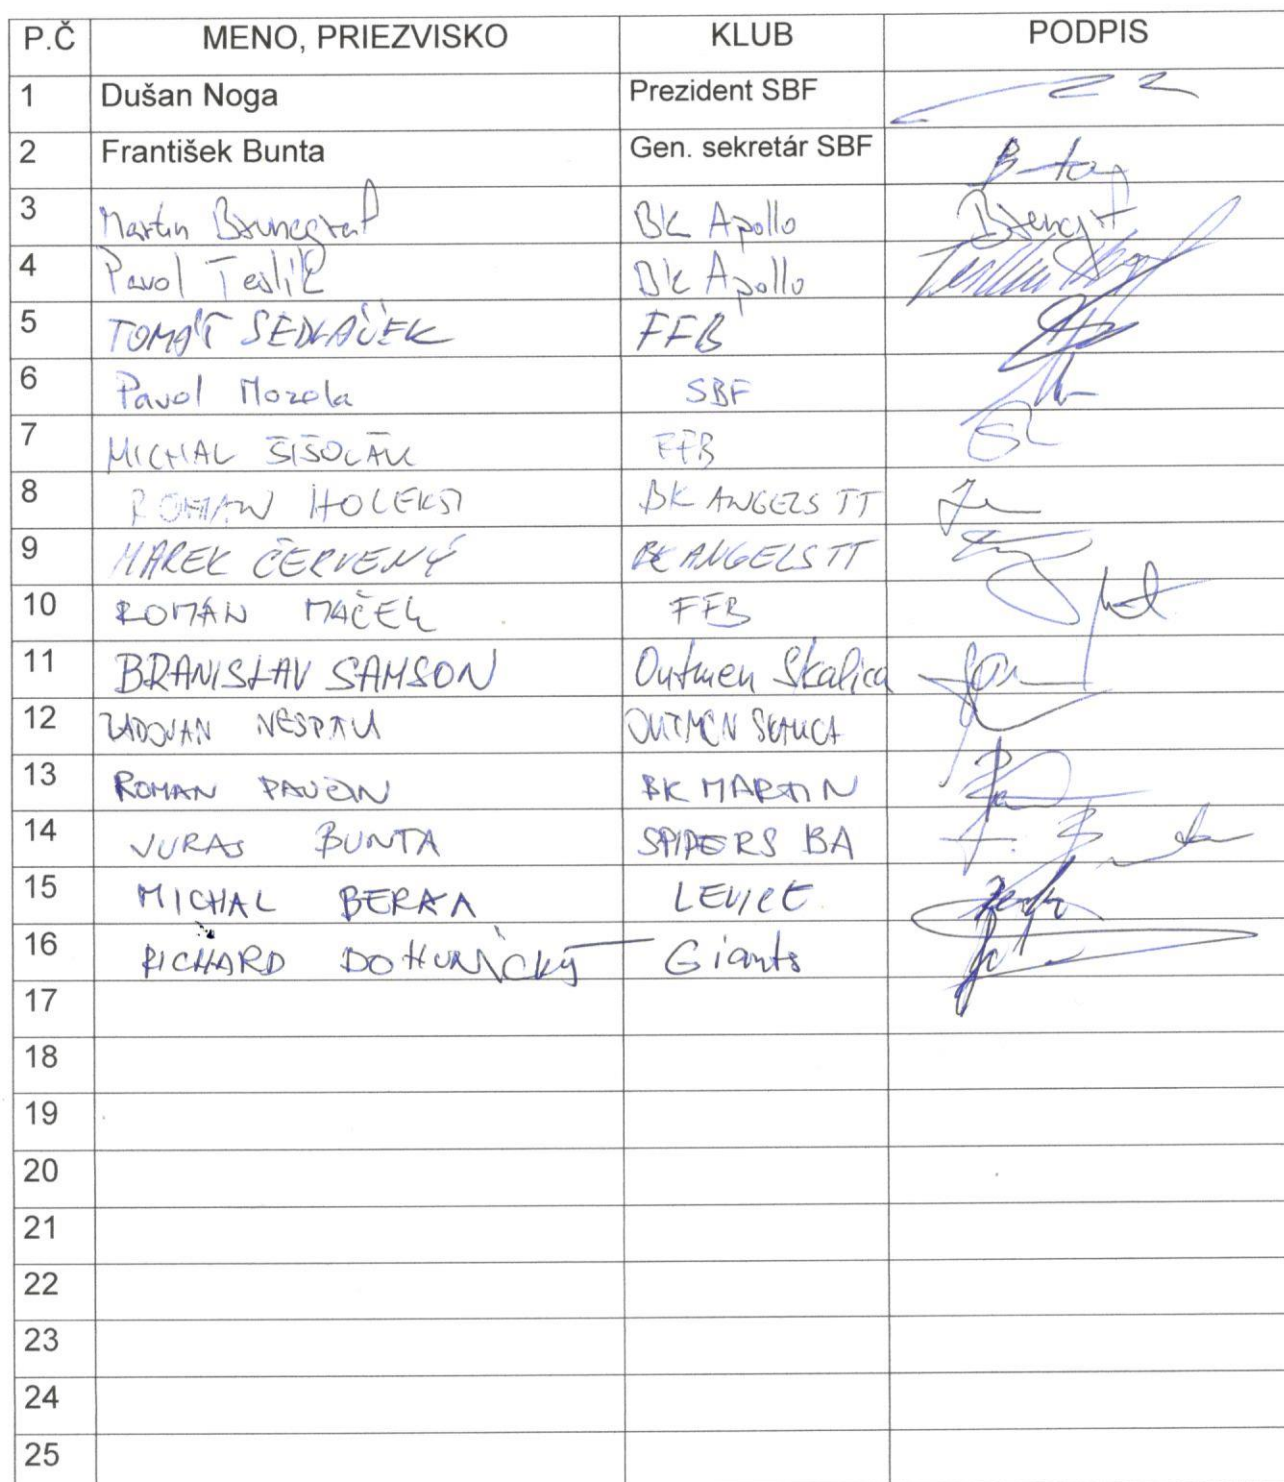 P.Č MENO, PRIEZVISKO KLUB PODPIS
1 Dušan Noga Prezident SBF
2 František Bunta Gen. sekretár SBF
3 Martin Brunegraf BK Apollo
4 Pavol Teslík BK Apollo
5 TOMÁŠ SEDLÁČEK FFB
6 Pavol Mozola SBF
7 MICHAL ŠIŠOLÁK FFB
8 ROMAN HOLEKSI BK ANGELS TT
9 MAREK ČERVENÝ BK ANGELS TT
10 ROMAN MAČEK FFB
11 BRANISLAV SAMSON Outmen Skalica
12 RADOVAN OUTMEN SKALICA
13 ROMAN BK MARTIN
14 JURAJ BUNTA SPIDERS BA
15 MICHAL LEVICE
16 RICHARD Giants
17
18
19
20
21
22
23
24
25